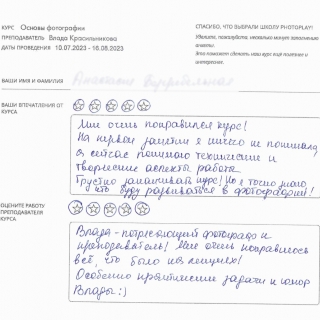 КУРС Основы фотографии
ПРЕПОДАВАТЕЛЬ Влада Красильникова
ДАТЫ ПРОВЕДЕНИЯ 10.07.2023 - 16.08.2023
СПАСИБО, ЧТО ВЫБРАЛИ ШКОЛУ PHOTOPLAY!
Уделите, пожалуйста, несколько минут заполнению анкеты.
Это поможет сделать наш курс еще полезнее и интереснее.
ВАШИ ИМЯ И ФАМИЛИЯ
ВАШИ ВПЕЧАТЛЕНИЯ ОТ КУРСА
Мне очень понравился курс!
На первом занятии я ничего не понимала,
а сейчас понимаю технические и
творческие аспекты работы.
Грустно заканчивать курс! Но я точно знаю,
что буду развиваться в фотографии!
ОЦЕНИТЕ РАБОТУ ПРЕПОДАВАТЕЛЯ КУРСА
Влада - потрясающий фотограф и
преподаватель! Мне очень понравилось
всё, что было на лекциях!
Особенно практические задачи и юмор
Влады :)